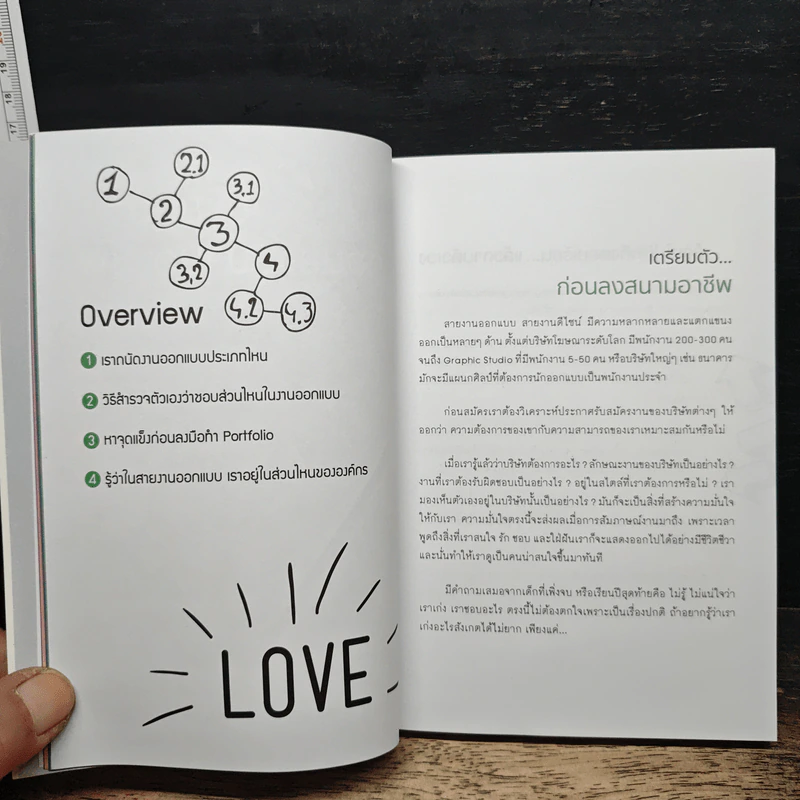 19
18
17
1
2.1
2
3.1
3
3.2
4
4.2
4.3
Overview
1 เราถนัดงานออกแบบประเภทไหน
2 วิธีสำรวจตัวเองว่าชอบส่วนไหนในงานออกแบบ
3 หาจุดแข็งก่อนลงมือทำ Portfolio
4 รู้ว่าในสายงานออกแบบ เราอยู่ในส่วนไหนขององค์กร
LOVE
เตรียมตัว...
ก่อนลงสนามอาชีพ
สายงานออกแบบ สายงานดีไซน์ มีความหลากหลายและแตกแขนง
ออกเป็นหลายๆ ด้าน ตั้งแต่บริษัทโฆษณาระดับโลก มีพนักงาน 200-300 คน
จนถึง Graphic Studio ที่มีพนักงาน 5-50 คน หรือบริษัทใหญ่ๆ เช่น ธนาคาร
มักจะมีแผนกศิลป์ที่ต้องการนักออกแบบเป็นพนักงานประจำ
ก่อนสมัครเราต้องวิเคราะห์ประกาศรับสมัครงานของบริษัทต่างๆ ให้
ออกว่า ความต้องการของเขากับความสามารถของเราเหมาะสมกันหรือไม่
เมื่อเรารู้แล้วว่าบริษัทต้องการอะไร ? ลักษณะงานของบริษัทเป็นอย่างไร ?
งานที่เราต้องรับผิดชอบเป็นอย่างไร ? อยู่ในสไตล์ที่เราต้องการหรือไม่ ? เรา
มองเห็นตัวเองอยู่ในบริษัทนั้นเป็นอย่างไร ? มันก็จะเป็นสิ่งที่สร้างความมั่นใจ
ให้กับเรา ความมั่นใจตรงนี้จะส่งผลเมื่อการสัมภาษณ์งานมาถึง เพราะเวลา
พูดถึงสิ่งที่เราสนใจ รัก ชอบ และใฝ่ฝันเราก็จะแสดงออกไปได้อย่างมีชีวิตชีวา
และนั่นทำให้เราดูเป็นคนน่าสนใจขึ้นมาทันที
มีคำถามเสมอจากเด็กที่เพิ่งจบ หรือเรียนปีสุดท้ายคือ ไม่รู้ ไม่แน่ใจว่า
เราเก่ง เราชอบอะไร ตรงนี้ไม่ต้องตกใจเพราะเป็นเรื่องปกติ ถ้าอยากรู้ว่าเรา
เก่งอะไรสังเกตได้ไม่ยาก เพียงแค่...